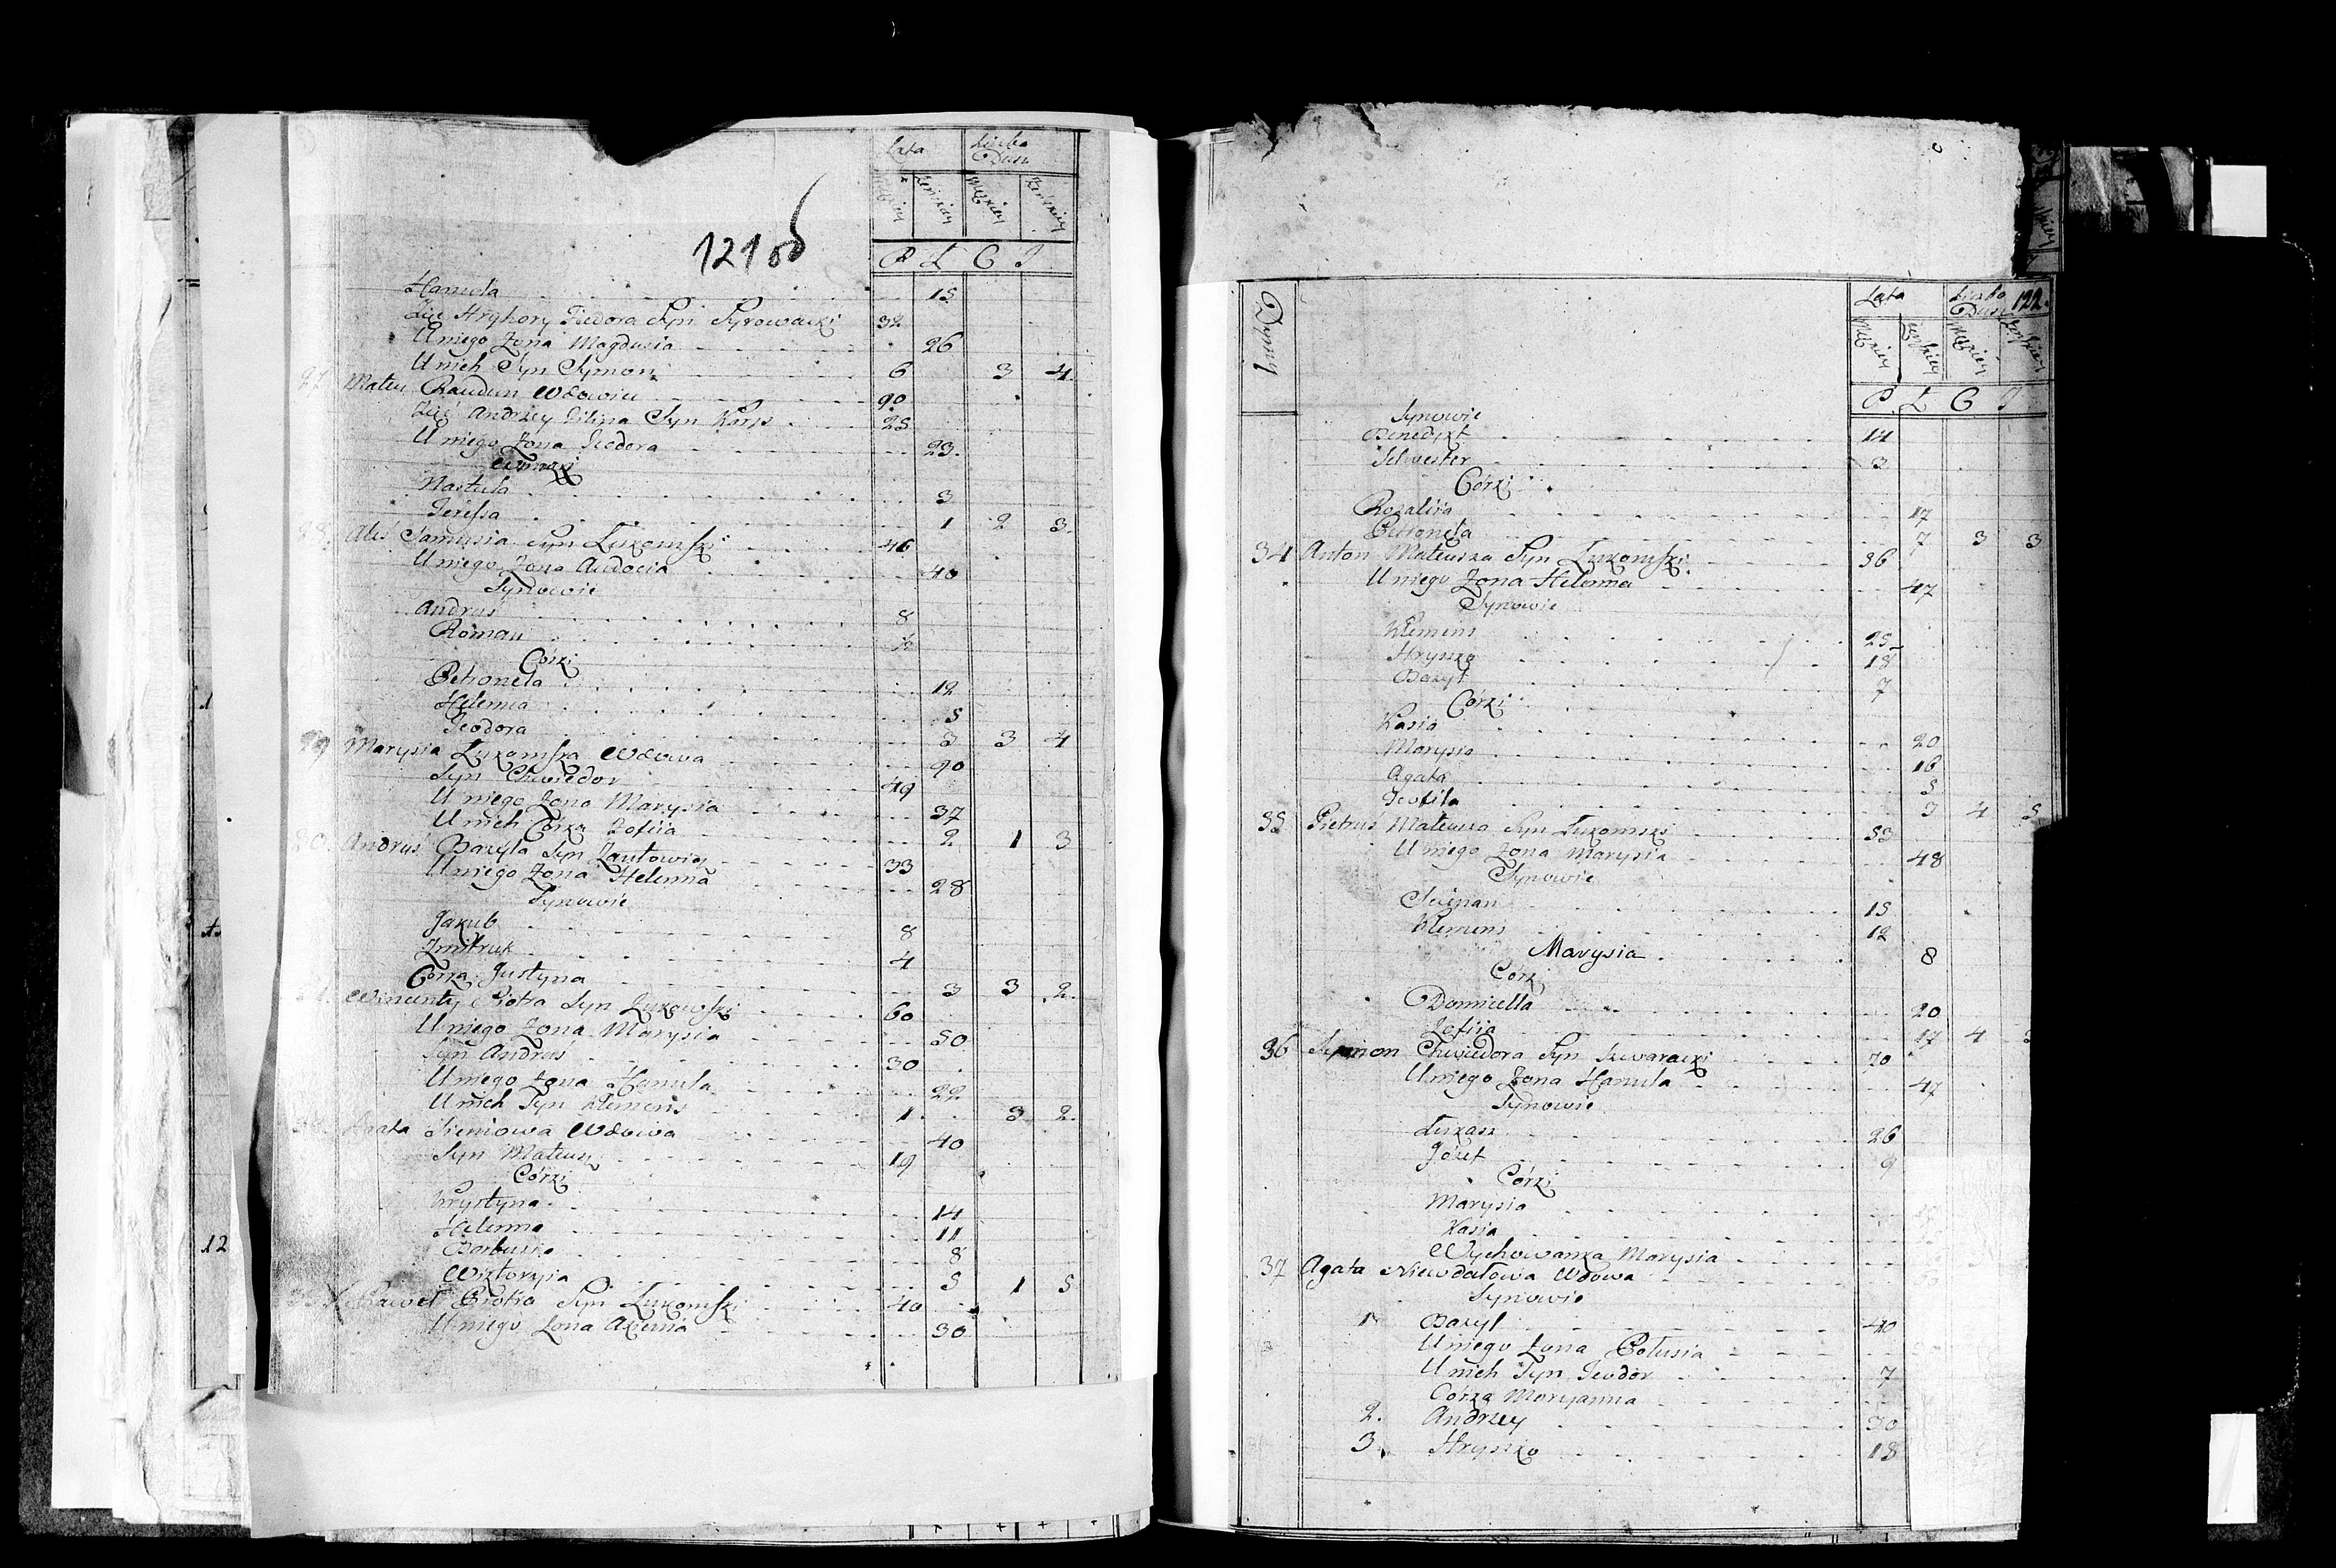 121 об
Lata Liczba Dusz
Męzkiey Zenzkiey Męzkiey Zenzkiey
P L C J
Hanula 15
Zięć Hryhory Fiedora Syn Syrowacki 32
U niego Zona Magdusia 26
U nich Syn Symon 6 3 4
27 Mateu Raudun Wdowiec 90
Zięć Andrzey Filipa Syn Kors 25
U niego Zona Teodora 23
Nastula 3
Teressa 1 2 3
28 Aleś Samusia Syn Łukomski 46
U niego Zona Audocia 40
Synowie
Andruś 8
Roman ½
Córki
Petronela 12
Helenna 5
Teodora 3 3 4
29 Marysia Łukomska Wdowa 90
Syn Chwiedor 49
U niego Zona Marysia 37
U nich Córka Zofiia 2 1 3
30 Andruś Bazyla Syn Zautowicz 33
U niego Zona Helenna 28
Synowie
Jakub 8
Zmitruk 4
Córka Justyna 3 3 2
Wincenty Piotra Syn Łukowski 60
U niego Zona Marysia 50
Syn Andruś 30
U niego Zona Hanula 22
U nich Syn Klemens 1 3 2
Agata Sieniowa Wdowa 40
Syn Mateusz 19
Córki
Krystyna 14
Helenna 11
Barbuska 8
Wiktorysia 5 1 5
Paweł Piotra Syn Łukomski 40
U niego Zona Axenia 30
122.
Dymy
Lata Liczba Dusz
Męzkiey Zenzkiey Męzkiey Zenzkiey
P L C J
Synowie
Benedykt 14
Selwester 3
Córki
Rozaliia 17
Petronela 7 3 3
34 Anton Mateusza Syn Łukomski 56
U niego Zona Helenna 47
Synowie
Klemens 25
Hryszko 18
Bazyl 7
Córki
Kasia 20
Marysia 16
Agata 5
Teofila 3 4 5
35 Pietruś Mateusza Syn Łukomski 53
U niego Zona Marysia 48
Synowie
Sciepan 15
Klemens 12
Marysia 8
Córki
Domicella 20
Zofiia 17 4
36 Symon Chwiedora Syn Suwaracki 70
U niego Zona Hanula 47
Synowie
Łukasz 26
Józef 9
Córki
Marysia
Kasia
Wychowanka Marysia
37 Agata Niewdałowa Wdowa
Synowie
1 Bazyl 40
U niego Zona Połusia
U nich Syn Teodor 7
Córka Maryanna
2. Andrzey 30
3. Hryszko 18